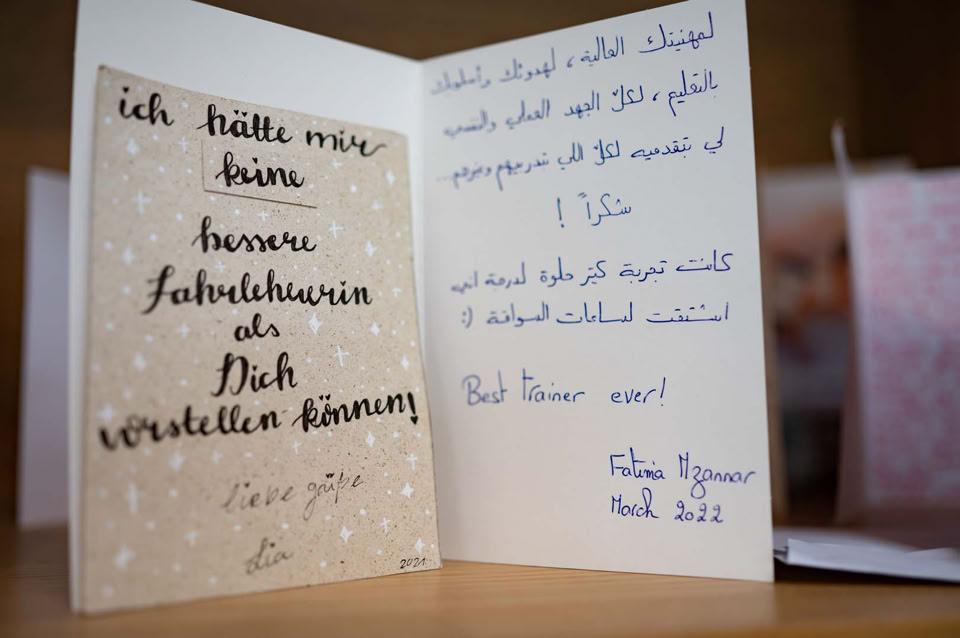 ich hätte mir
keine
bessere
Fahrlehrerin
als
Dich
vorstellen können!
liebe grüße
dia
2021
لمهنيتك العالية، لهدوئك وأسلوبك
بالتعليم، لكلّ الجهد العملي والنفسي
لي بتقدميه لكلّ اللي بتدربيهم وغيرهم...
شكراً !
كانت تجربة كتير حلوة لدرجة اني
اشتقت لساعات السواقة :)
Best trainer ever!
Fatima Mzannar
March 2022